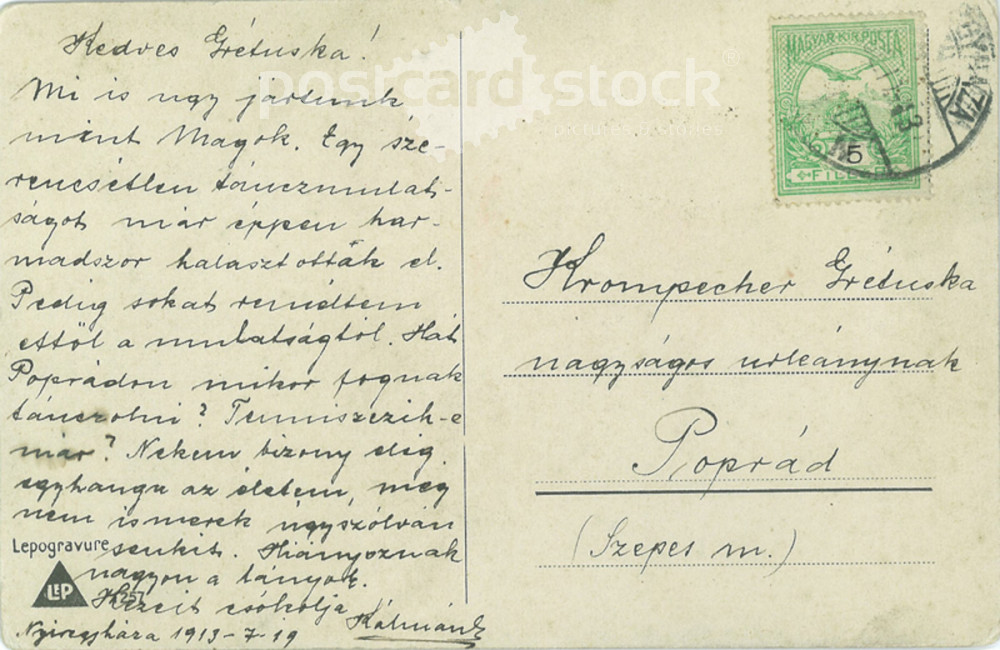 Kedves Grétuska!
Mi is ugy jártunk
mint Magok. Egy sze-
rencsétlen tánczmulat-
ságot már éppen har-
madszor halasztották el.
Pedig sokat reméltem
ettől a mulatságtól. Hát
Poprádon mikor fognak
tánczolni? Tenniszezik-e
már? Nekem bizony elég
egyhangu az életem, még
nem ismerek úgyszólván
senkit. Hiányoznak
nagyon a lányok.
Kezeit csókolja
Kálmán
Nyiregyháza 1913-7-19
Lepogravure
LEP
postcard stock
pictures & stories
MAGYAR KIR. POSTA
5
FILLÉR
Krompecher Grétuska
nagyságos urleánynak
Poprád
(Szepes m.)